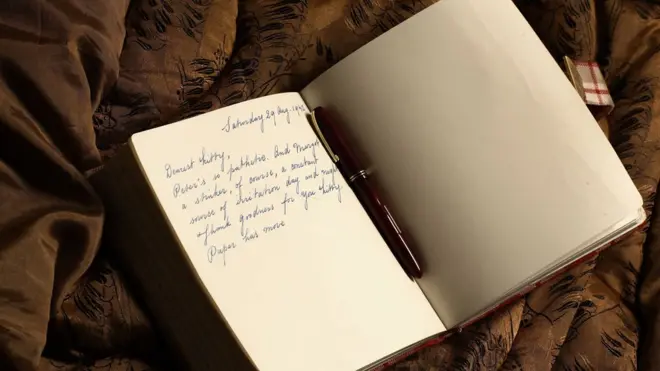 Saturday 29 Aug.
Dearest Kitty,
Peter's so pathetic. And Margot
a, of course, a constant
source of irritation day and night
Thank goodness for you Kitty.
Paper has more